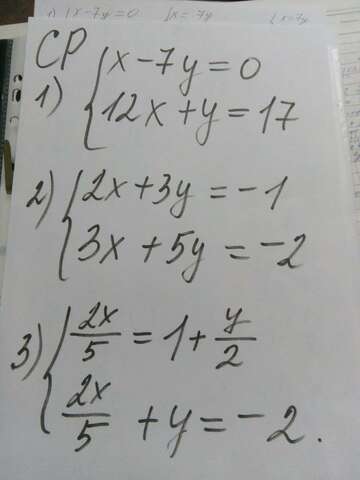 1) { x-7y=0 { x= 7y { x=7y
СР
1) { x-7y=0
12x+y=17
2) { 2x+3y=-1
3x+5y=-2
3) { 2x/5 = 1+ y/2
2x/5 +y=-2.